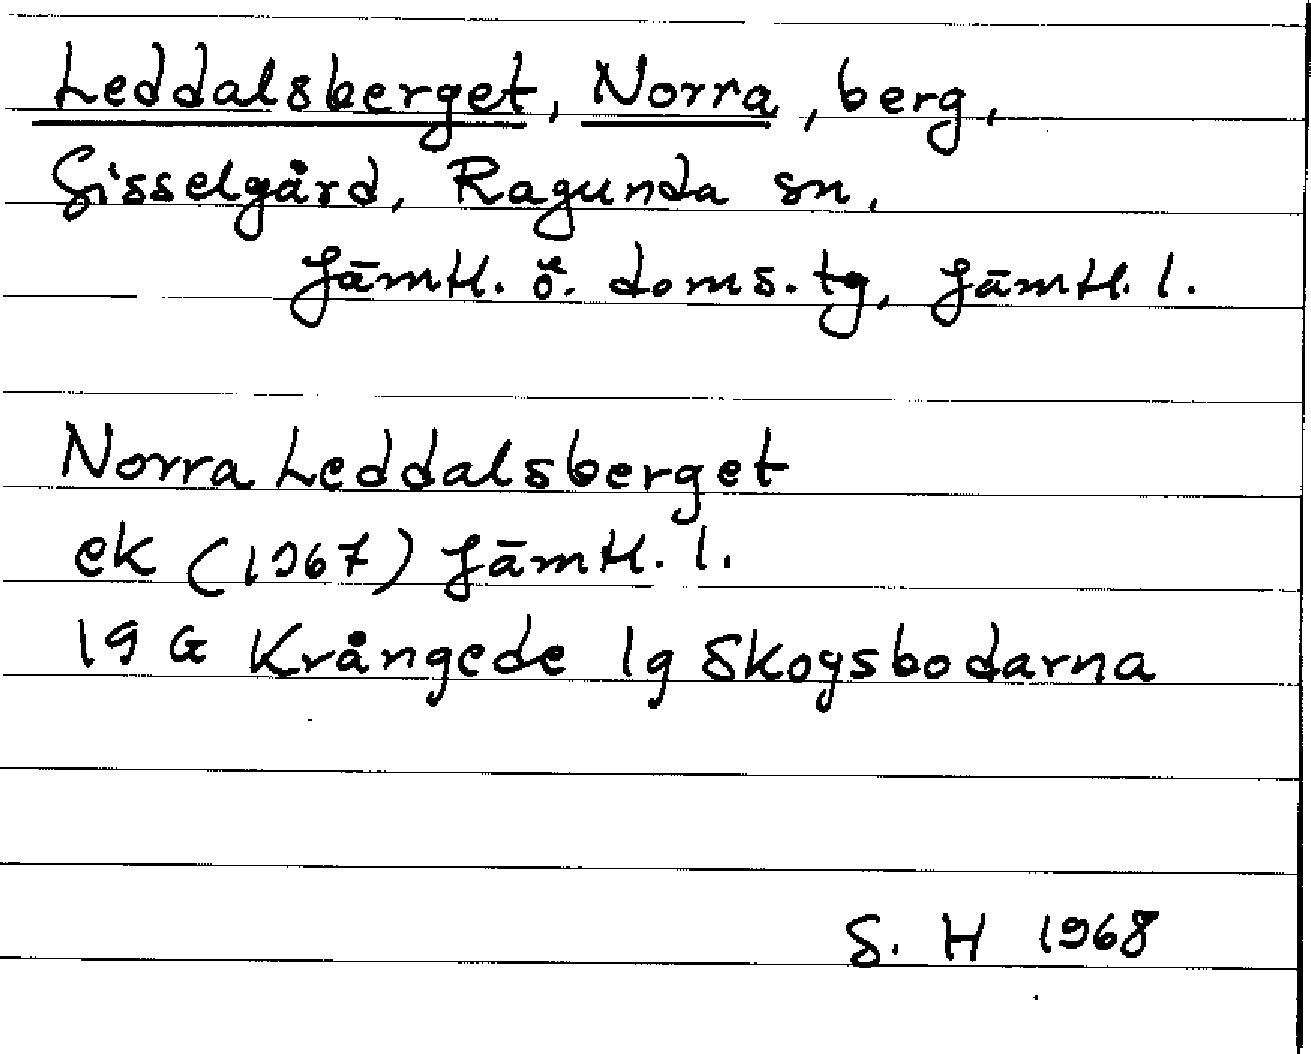 Leddalsberget, Norra, berg,
Gisselgård, Ragunda sn,
Jämtl. ö. doms. tg, Jämtl. l.
Norra Leddalsberget
ek (1967) Jämtl. l.
19 G Krångede 1g Skogsbodarna
S. H 1968